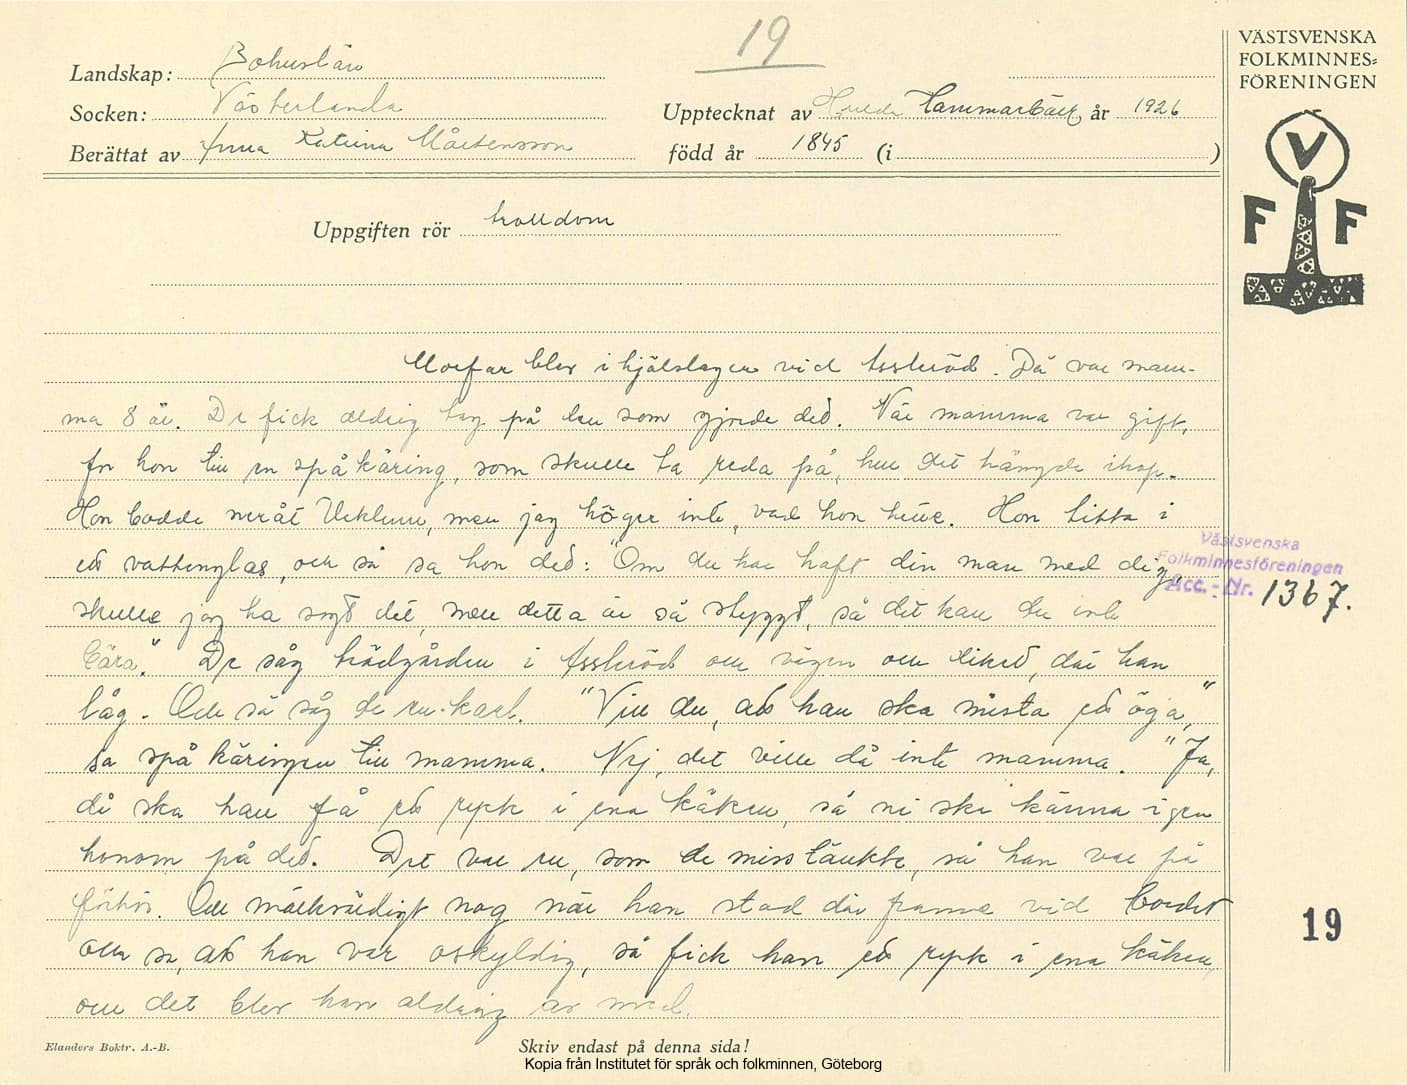 19
VÄSTSVENSKA
FOLKMINNES=
FÖRENINGEN
Landskap: Bohuslän
Socken: Västerlanda
Upptecknat av Hammarbäck år 1926
Berättat av Anna Katrina Mårtensson
född år 1845 (i )
V
F F
Uppgiften rör trolldom
Morfar blev ihjälslagen vid Assleröd. Då var mam-
ma 8 år. De fick aldrig tag på den som gjorde ded. När mamma var gift,
for hon till en spåkäring, som skulle ta reda på, hur det hängde ihop.
Hon bodde neråt Ucklum, men jag höger inte, vad hon hette. Hon titta i
ed vattenglas, och så sa hon ded: "Om du har haft din man med dig,
skulle jag ha sagt det, men detta är så styggt, så det kan du inte
bära." De såg trädgården i Assleröd och vägen och liked, där han
låg. Och så såg de en karl. "Vill du, ad han ska mista ed öga,"
sa spåkäringen till mamma. Nej, det ville då inte mamma. "Ja,
då ska han få ed ryck i ena käken, så ni ska känna igen
honom på ded. Det var en, som de misstänkte, så han var på
förhör. Och märkvärdigt nog när han stod där framme vid bordet
och sa, ad han var oskyldig, så fick han ed ryck i ena käken,
och det blev han aldrig av med.
Västsvenska
Folkminnesföreningen
Acc.-Nr. 1367.
19
Elanders Boktr. A.-B.
Skriv endast på denna sida!
Kopia från Institutet för språk och folkminnen, Göteborg